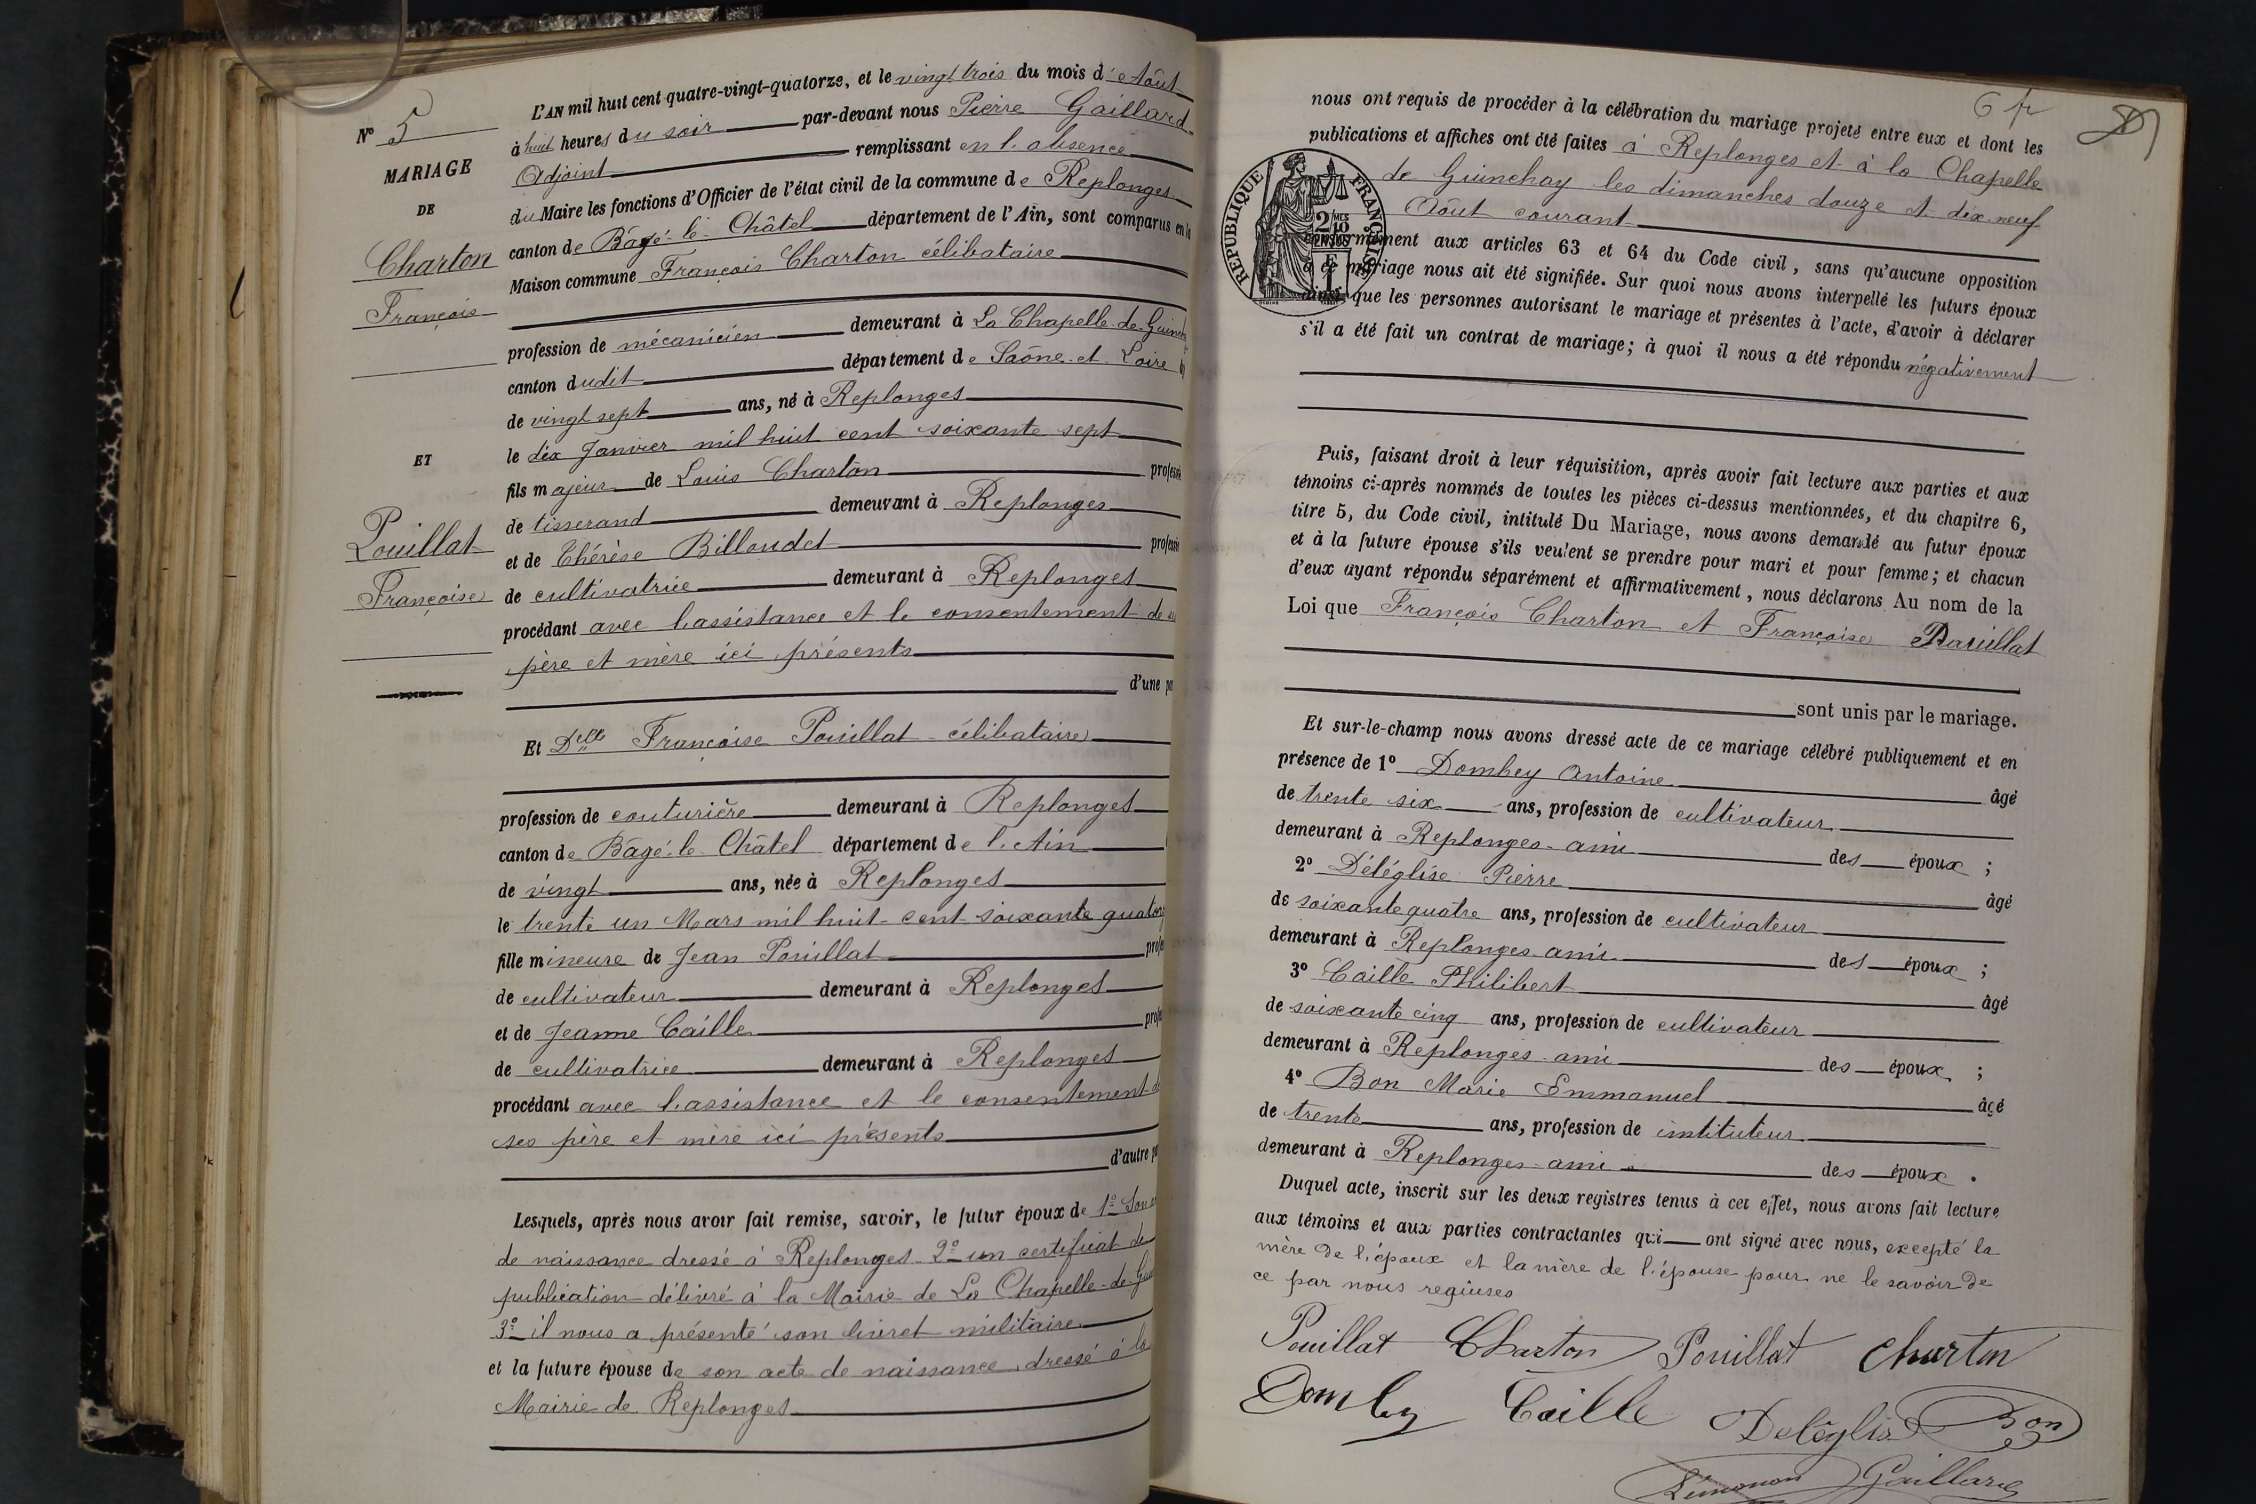 N° 5
MARIAGE
DE
Charton
François
ET
Pouillat
Françoise
L'AN mil huit cent quatre-vingt-quatorze, et le vingt trois du mois d'Août
à huit heures du soir par-devant nous Pierre Gaillard
Adjoint remplissant en l'absence
du Maire les fonctions d'Officier de l'état civil de la commune de Replonges
canton de Bâgé-le-Châtel département de l'Ain, sont comparus en la
Maison commune François Charton célibataire
profession de mécanicien demeurant à La Chapelle-de-Guinch
canton dudit département de Saône-et-Loire
de vingt sept ans, né à Replonges
le dix Janvier mil huit cent soixante sept
fils majeur de Louis Charton profess
de tisserand demeurant à Replonges
et de Thérèse Billoudet profession
de cultivatrice demeurant à Replonges
procédant avec l'assistance et le consentement de
père et mère ici présents
d'une pa
Et Delle Françoise Pouillat célibataire
profession de couturière demeurant à Replonges
canton de Bâgé-le-Châtel département de l'Ain
de vingt ans, née à Replonges
le trente un Mars mil huit-cent soixante quator
fille mineure de Jean Pouillat profe
de cultivateur demeurant à Replonges
et de Jeanne Caille profe
de cultivatrice demeurant à Replonges
procédant avec l'assistance et le consentement de
ses père et mère ici présents
d'autre pa
Lesquels, après nous avoir fait remise, savoir, le futur époux de 1° Son
de naissance dressé à Replonges 2° un certificat de
publication délivré à la Mairie de La Chapelle-de-Gui
3° il nous a présenté son livret militaire
et la future épouse de son acte de naissance dressé à la
Mairie de Replonges
6 fr
nous ont requis de procéder à la célébration du mariage projeté entre eux et dont les
publications et affiches ont été faites à Replonges et à la Chapelle
de Guinchay les dimanches douze et dix-neuf
Août courant
RÉPUBLIQUE FRANÇAISE
2/10
conformément aux articles 63 et 64 du Code civil, sans qu'aucune opposition
à ce mariage nous ait été signifiée. Sur quoi nous avons interpellé les futurs époux
ainsi que les personnes autorisant le mariage et présentes à l'acte, d'avoir à déclarer
s'il a été fait un contrat de mariage; à quoi il nous a été répondu négativement
Puis, faisant droit à leur réquisition, après avoir fait lecture aux parties et aux
témoins ci-après nommés de toutes les pièces ci-dessus mentionnées, et du chapitre 6,
titre 5, du Code civil, intitulé Du Mariage, nous avons demandé au futur époux
et à la future épouse s'ils veulent se prendre pour mari et pour femme; et chacun
d'eux ayant répondu séparément et affirmativement, nous déclarons Au nom de la
Loi que François Charton et Françoise Pouillat
sont unis par le mariage.
Et sur-le-champ nous avons dressé acte de ce mariage célébré publiquement et en
présence de 1° Dombey Antoine âgé
de trente six ans, profession de cultivateur
demeurant à Replonges ami des époux ;
2° Déléglise Pierre âgé
de soixante quatre ans, profession de cultivateur
demeurant à Replonges ami des époux ;
3° Caille Philibert âgé
de soixante cinq ans, profession de cultivateur
demeurant à Replonges ami des époux ;
4° Bon Marie Emmanuel âgé
de trente ans, profession de instituteur
demeurant à Replonges ami des époux.
Duquel acte, inscrit sur les deux registres tenus à cet effet, nous avons fait lecture
aux témoins et aux parties contractantes qui ont signé avec nous, excepté la
mère de l'époux et la mère de l'épouse pour ne le savoir de
ce par nous requises
Pouillat Charton Pouillat Charton
Dombey Caille Deléglise Bon
Gaillard